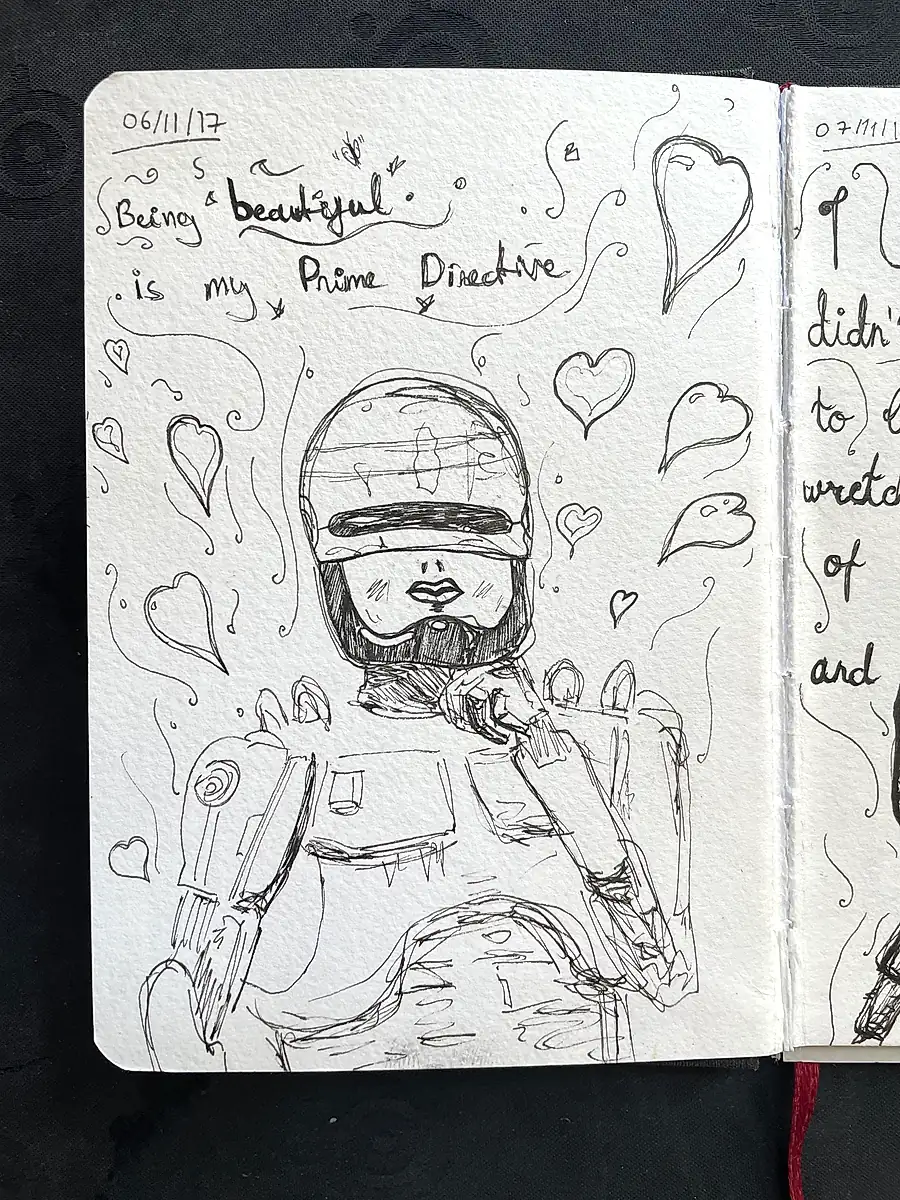 06/11/17
Being "beautiful"
is my Prime Directive
07/11/1
I
didn'
to
of
and